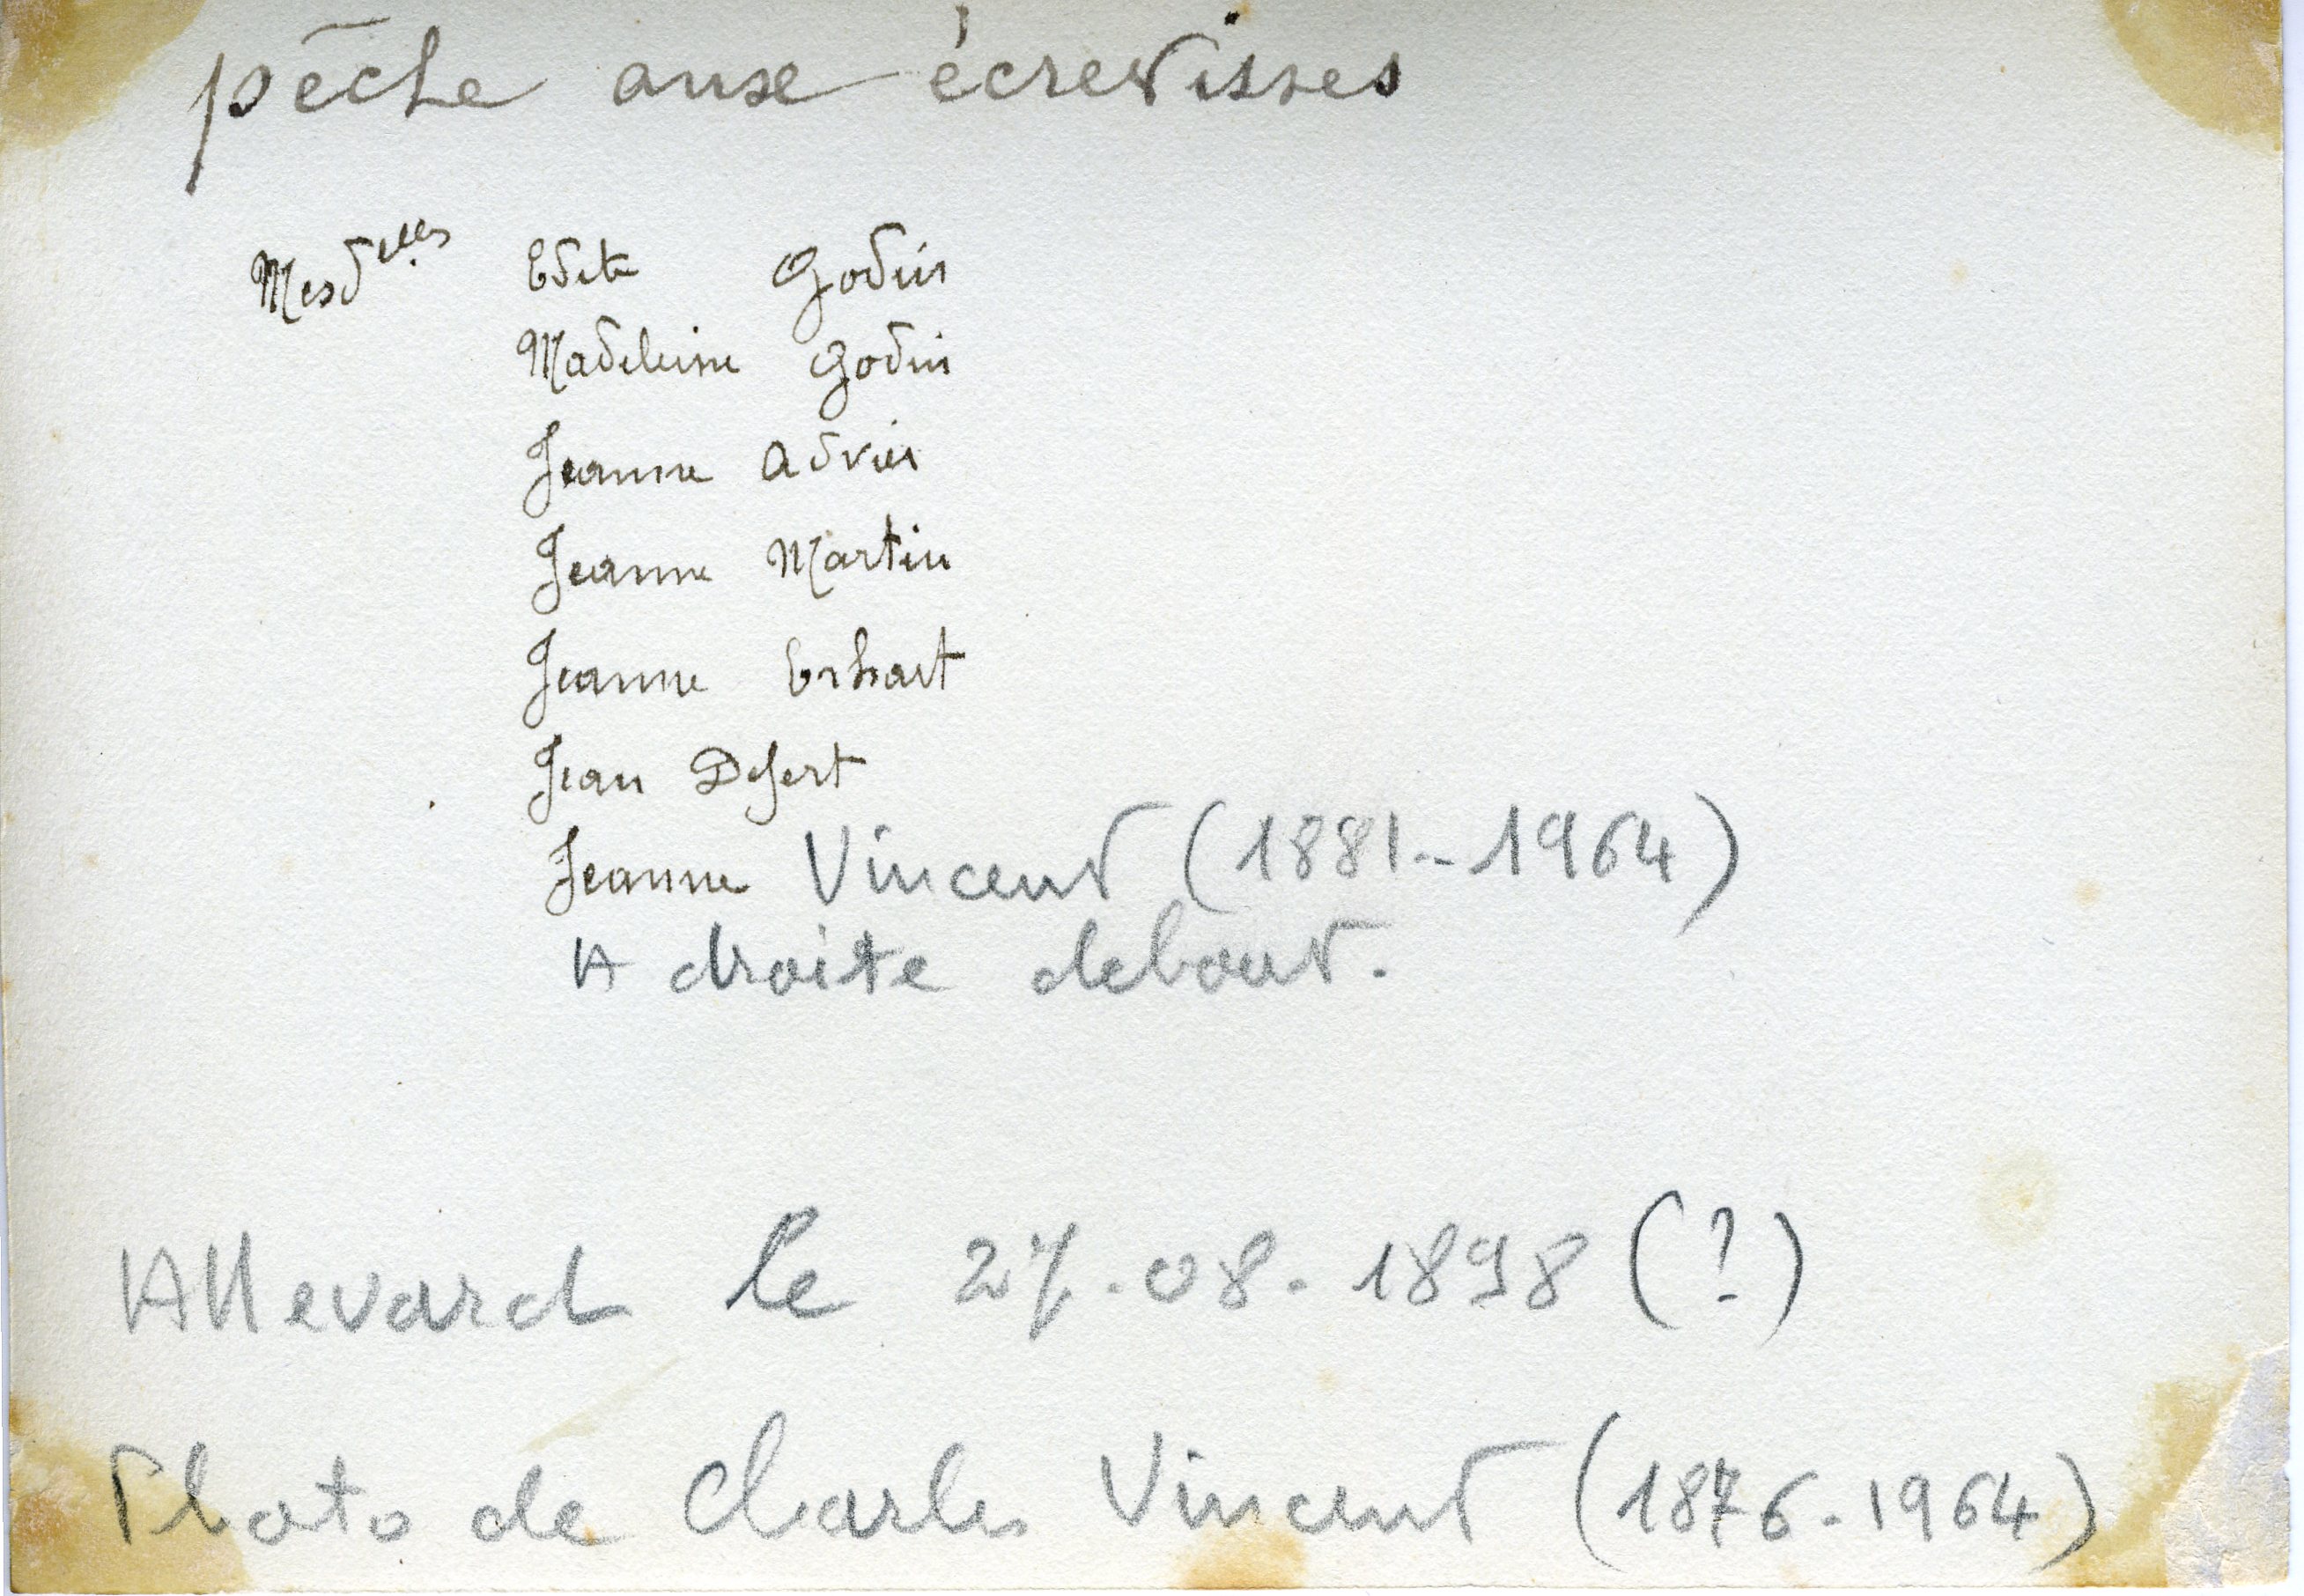 pêche aux écrevisses
Mesdelles Edit Godin
Madeleine Godin
Jeanne Advier
Jeanne Martin
Jeanne Erhart
Jean Defert
Jeanne Vincent (1881-1964)
A droite debout.
Allevard le 27.08.1898 (?)
Photo de Charles Vincent (1876-1964)